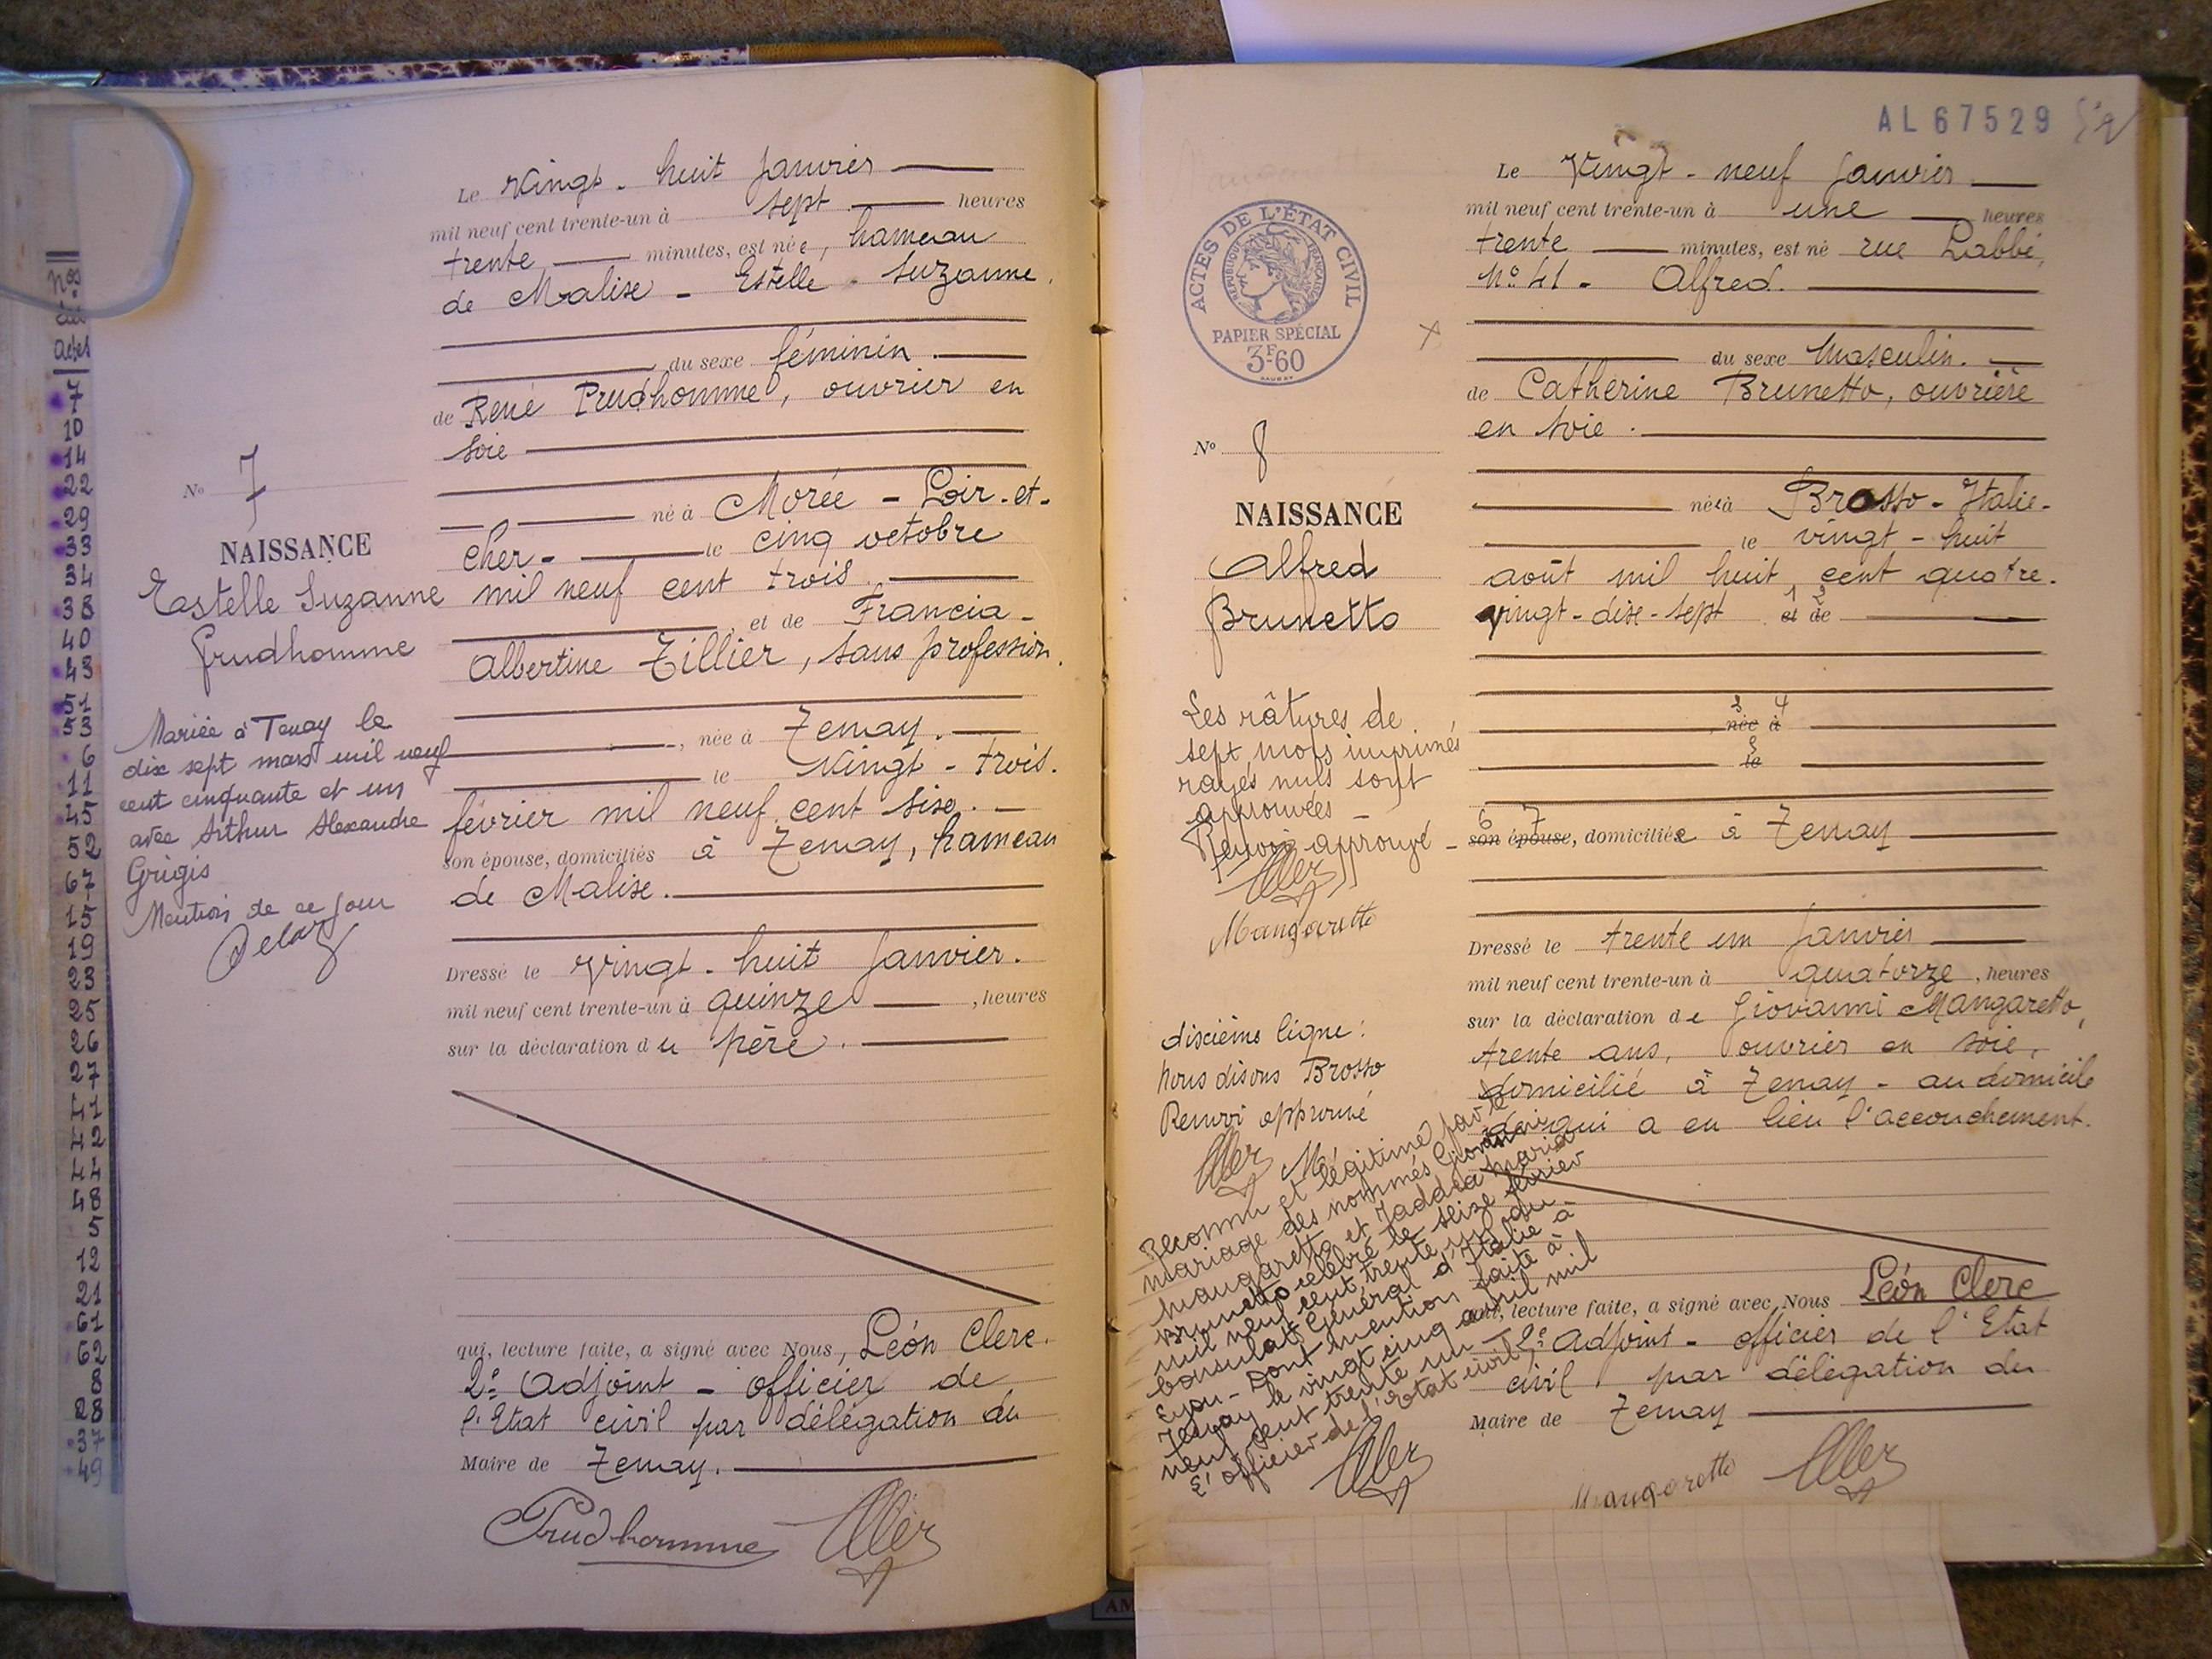 nos
du
actes
7
10
14
22
29
33
34
38
40
43
51
53
6
11
45
52
67
15
19
23
25
26
27
41
42
44
48
5
12
21
61
62
8
28
37
49
Le Vingt-huit Janvier
mil neuf cent trente-un à sept heures
trente minutes, est née, hameau
de Malise - Estelle - Suzanne.
du sexe féminin.
de René Prudhomme, ouvrier en
soie
né à Morée - Loir-et-
Cher - le cinq octobre
mil neuf cent trois.
, et de Francia-
Albertine Tillier, sans profession.
, née à Tenay.
le Vingt-trois.
février mil neuf cent six.
son épouse, domiciliés à Tenay, hameau
de Malise.
Dressé le Vingt-huit Janvier.
mil neuf cent trente-un à quinze, heures
sur la déclaration du père.
qui, lecture faite, a signé avec Nous, Léon Clerc.
2e Adjoint - officier de
l'Etat civil par délégation du
Maire de Tenay.
Prudhomme
No 7
NAISSANCE
Estelle Suzanne
Prudhomme
Mariée à Tenay le
dix sept mars mil neuf
cent cinquante et un
avec Arthur Alexandre
Grigis
Mention de ce jour
AL 67529
52
ACTES DE L'ÉTAT CIVIL
RÉPUBLIQUE FRANÇAISE
PAPIER SPÉCIAL
3F-60
Le Vingt-neuf Janvier
mil neuf cent trente-un à une heures
trente minutes, est né rue Labbé,
No 41 - Alfred.
du sexe Masculin.
de Catherine Brunetto, ouvrière
en soie.
née à Brosso - Italie -
le vingt-huit
août mil huit cent quatre-
1 2
vingt-dix-sept et de
3 4
, née à
5
le
6 7
son épouse, domiciliée à Tenay
Dressé le trente un Janvier
mil neuf cent trente-un à quatorze, heures
sur la déclaration de Giovanni Mangaretto,
trente ans, ouvrier en soie,
domicilié à Tenay - au domicile
de qui a eu lieu l'accouchement.
qui, lecture faite, a signé avec Nous Léon Clerc
2e Adjoint - officier de l'Etat
civil par délégation du
Maire de Tenay
Mangaretto
No 8
NAISSANCE
Alfred
Brunetto
Les râtures de
sept mots imprimés
rayés nuls sont
approuvées -
Renvoi approuvé -
Mangaretto
dixième ligne :
nous disons Brosso
Renvoi approuvé
Reconnu et légitimé par le
mariage des nommés Giovanni
Mangaretto et Maria
Brunetto célébré le seize février
mil neuf cent trente un au
Consulat Général d'Italie à
Lyon - Dont mention faite à
Tenay le vingt cinq avril mil
neuf cent trente un
L'officier de l'Etat civil,